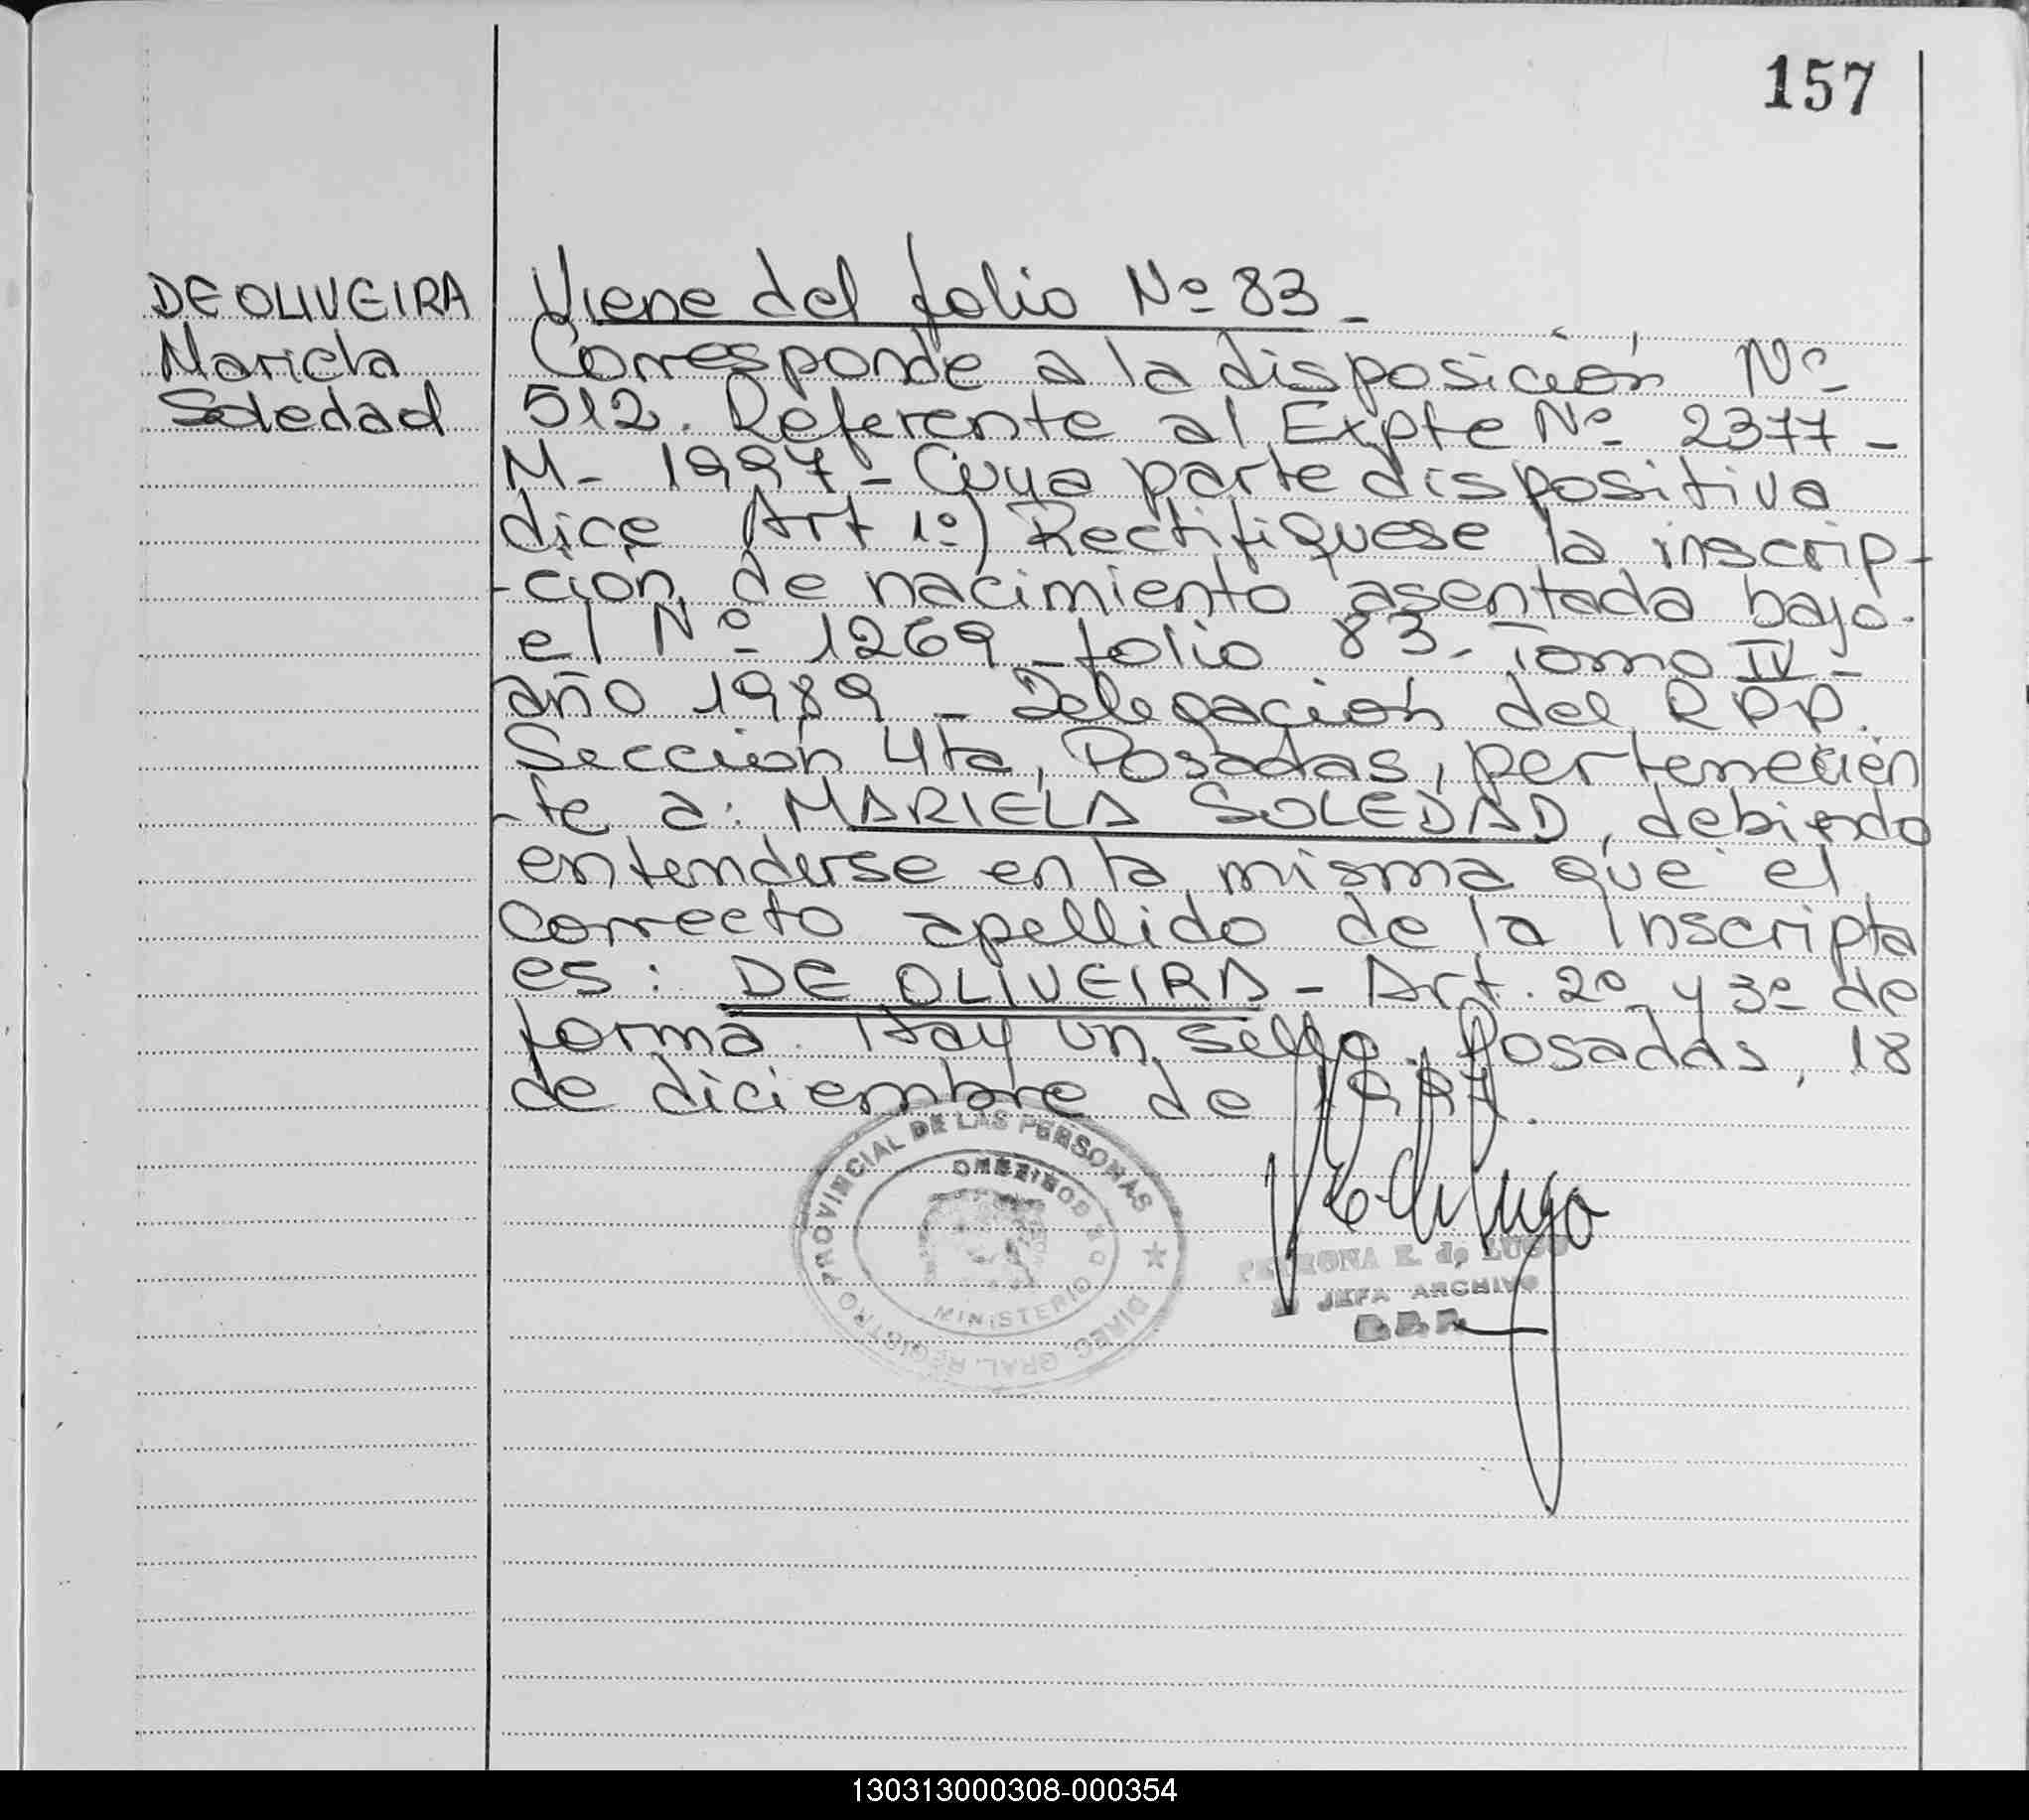 157
DE OLIVEIRA
Mariela
Soledad
Viene del folio Nº 83-
Corresponde a la disposición Nº
512. Referente al Expte Nº 2377-
M- 1997- Cuya parte dispositiva
dice Art 1º) Rectifiquese la inscrip-
-ción de nacimiento asentada bajo
el Nº 1269 - folio 83 - Tomo IV -
año 1989 - Delegación del RPP.
Sección 4ta, Posadas, pertenecien
-te a: MARIELA SOLEDAD, debiendo
entenderse en la misma que el
correcto apellido de la Inscripta
es: DE OLIVEIRA - Art. 2º y 3º de
forma. Hay un sello. Posadas, 18
de diciembre de 1997.
DIREC. GRAL. REGISTRO PROVINCIAL DE LAS PERSONAS
MINISTERIO DE GOBIERNO
PETRONA E. de LUGO
JEFA ARCHIVO
R.P.P.
130313000308-000354